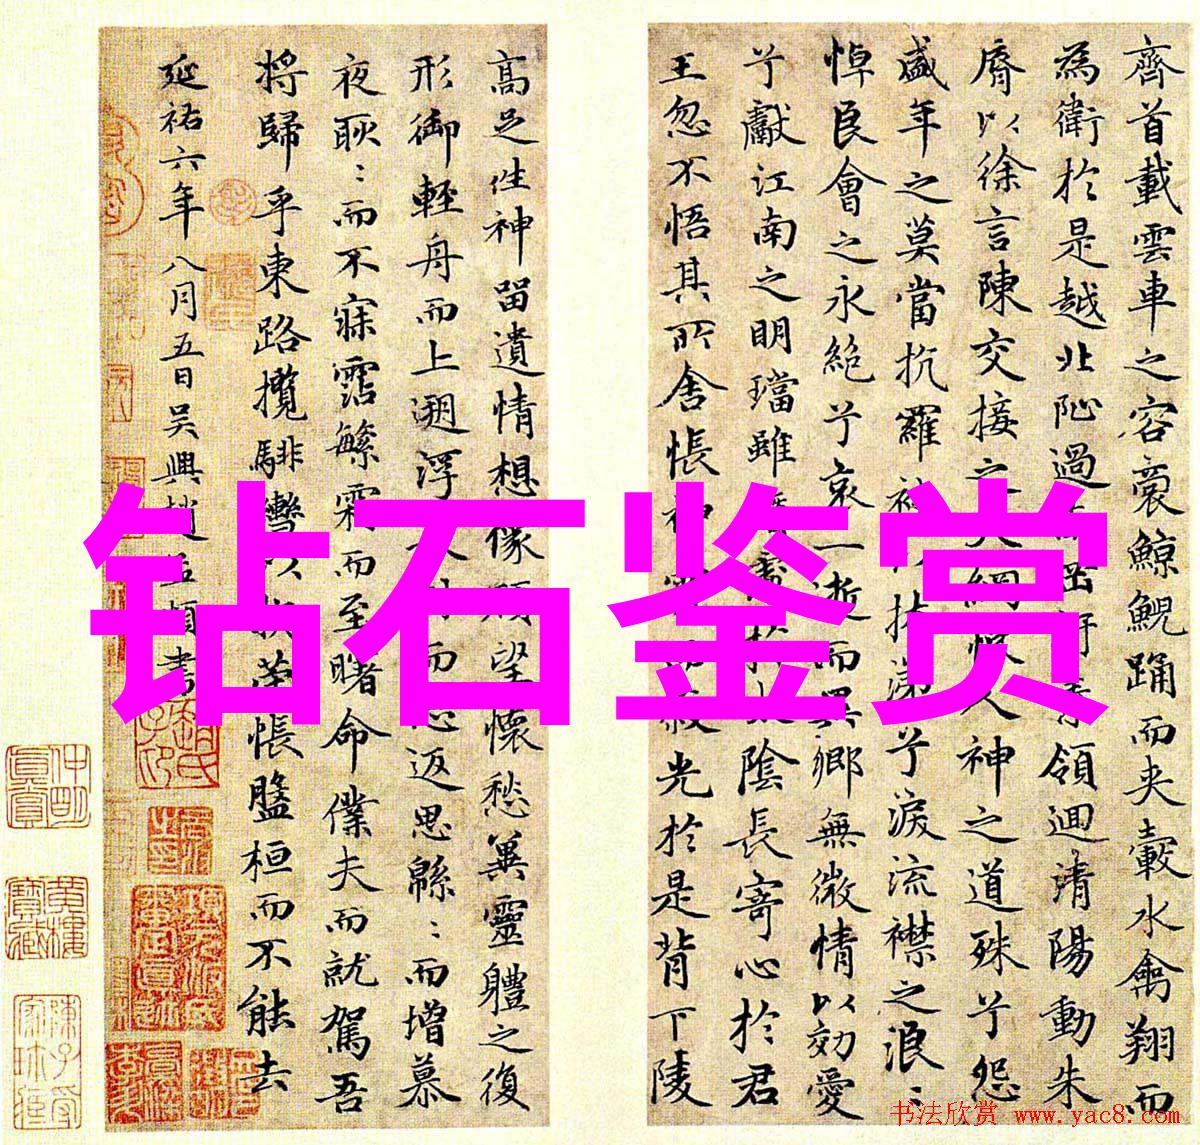 齊首載雲車之容裔鯨鯢踊而夾轂水禽翔而
為衛於是越北沚過領迴清陽動朱
脣以徐言陳交接之大綱恨人神之道殊兮怨
盛年之莫當抗羅兮淚流襟之浪〻
悼良會之永絕兮哀一逝而異鄉無微情以効愛
兮獻江南之明璫雖於太陰長寄心於君
王忽不悟其所舍悵光於是背下陵
高足往神留遺情想像顧望懷愁兾靈體之復
形御輕舟而上遡浮而返思緜〻而增慕
夜耿〻而不寐霑繁霜而至曙命僕夫而就駕吾
將歸乎東路攬騑轡以悵盤桓而不能去
延祐六年八月五日吳興趙孟頫書
钻石鉴赏
书法欣赏 www.yac8.com